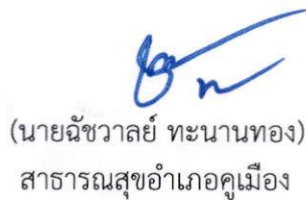 (นายฉัชวาลย์ ทะนานทอง)
สาธารณสุขอำเภอคูเมือง